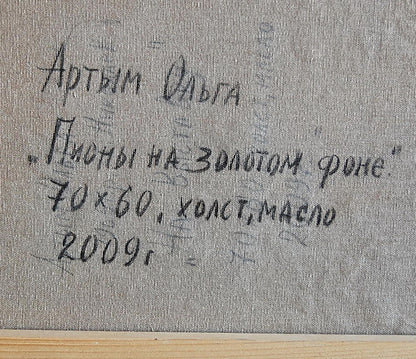 Артым Ольга
„Пионы на золотом фоне"
70×60, холст, масло
2009г